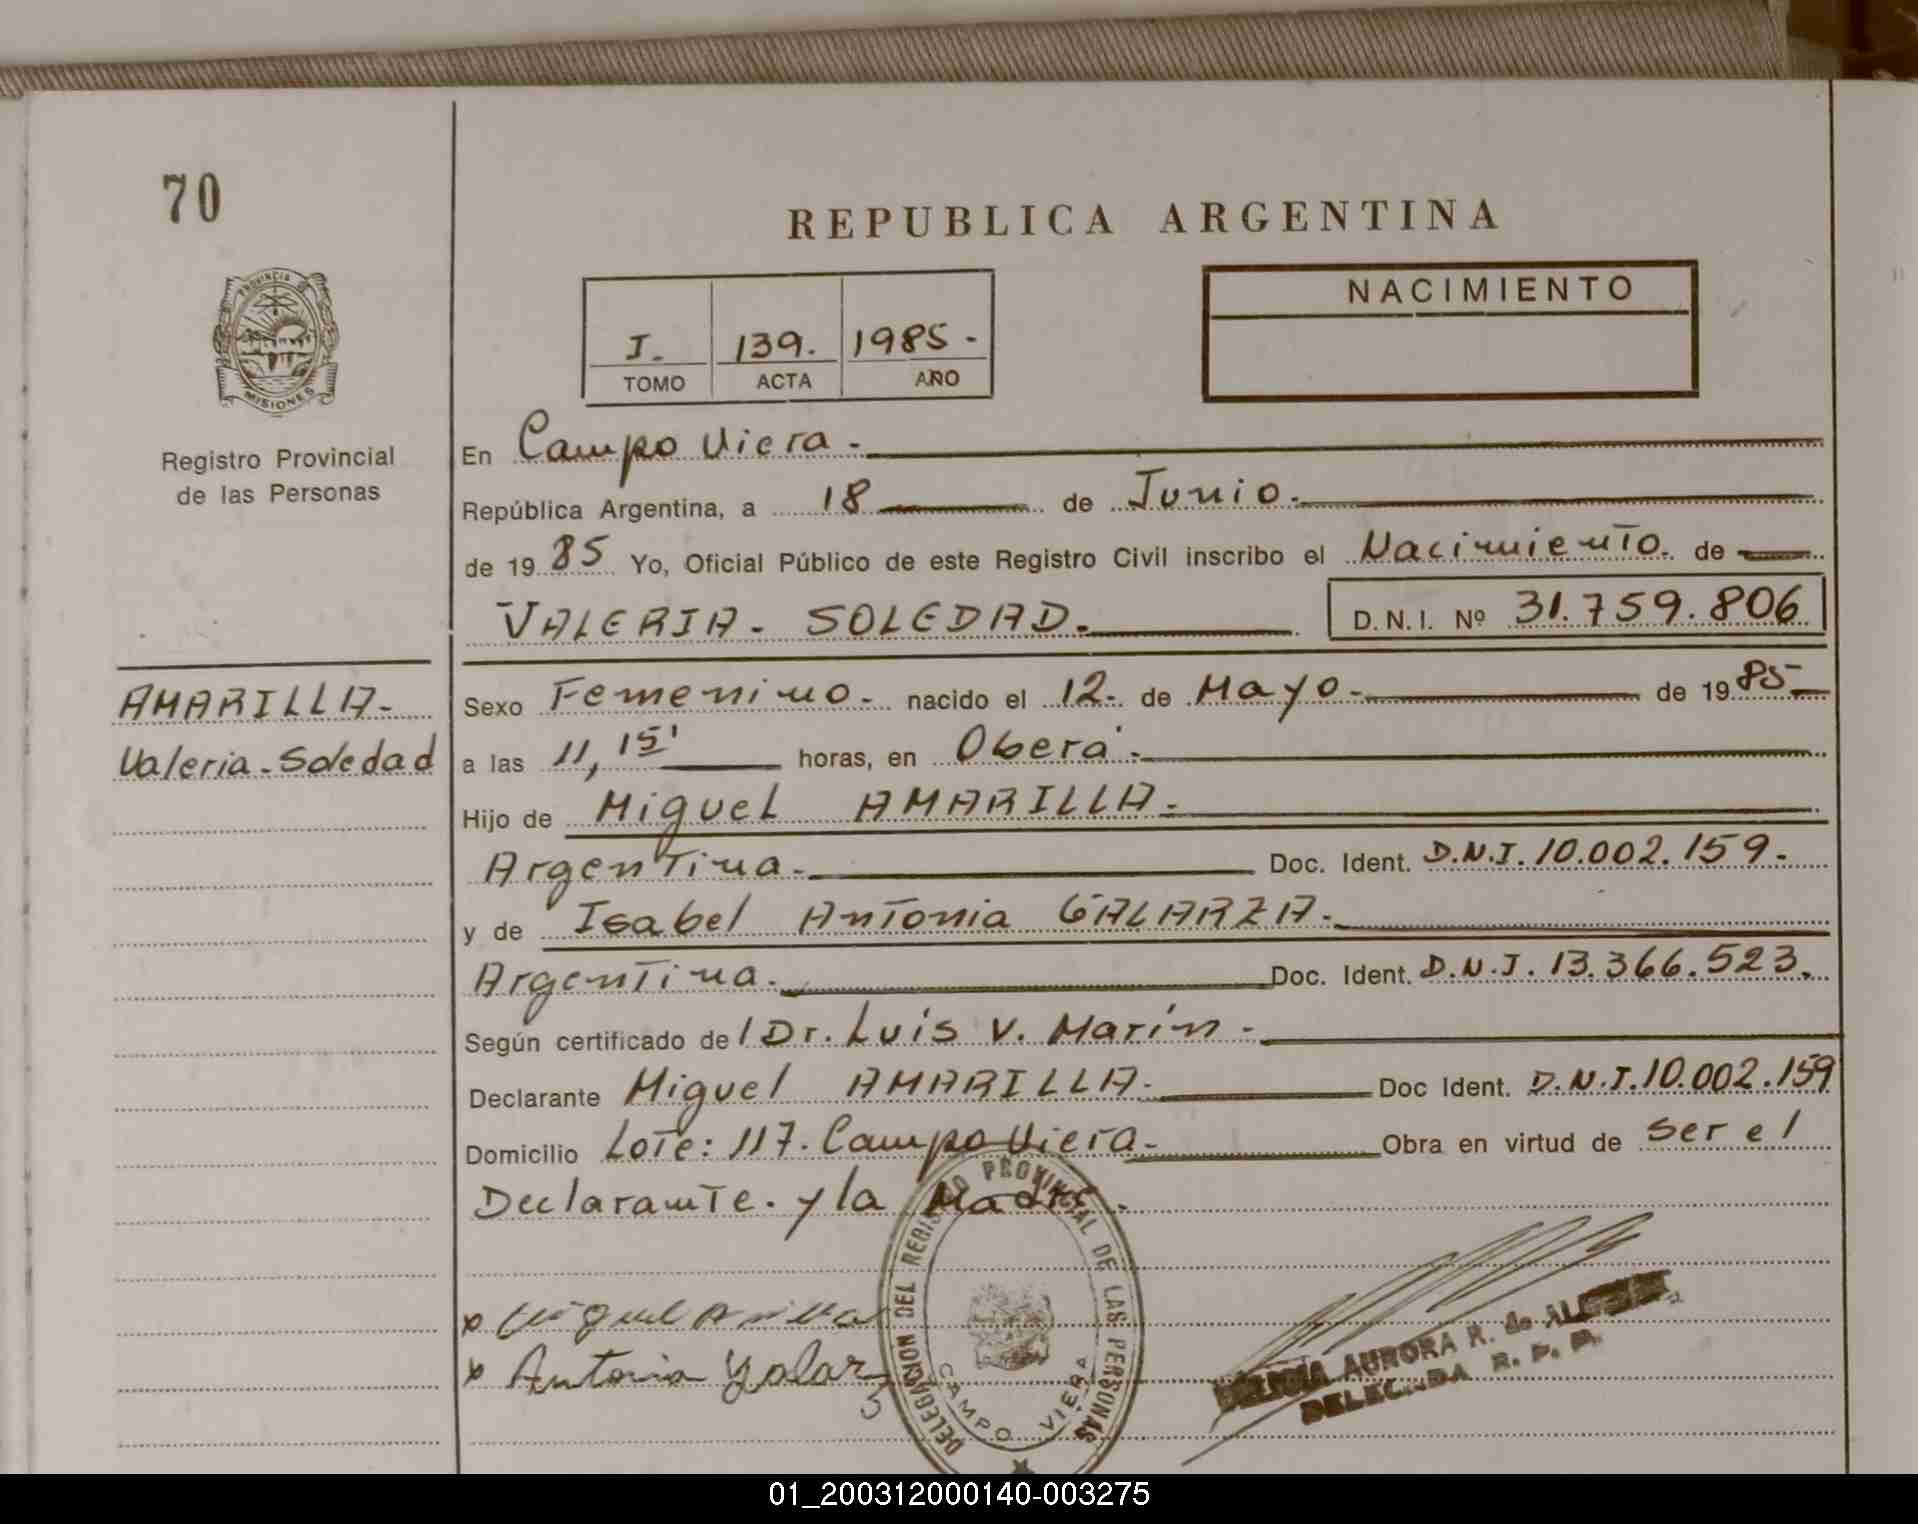 70
REPUBLICA ARGENTINA
PROVINCIA DE
MISIONES
Registro Provincial
de las Personas
I. 139. 1985.-
TOMO ACTA AÑO
NACIMIENTO
En Campo Viera.-
República Argentina, a 18 de Junio.-
de 19 85 Yo, Oficial Público de este Registro Civil inscribo el Nacimiento. de
VALERIA - SOLEDAD.- D.N.I. Nº 31.759.806
AMARILLA-
Valeria-Soledad
Sexo Femenino.- nacido el 12.- de Mayo.- de 19 85
a las 11,15' horas, en Oberá.-
Hijo de Miguel AMARILLA.-
Argentina.- Doc. Ident. D.N.I. 10.002.159.-
y de Isabel Antonia GALARZA.-
Argentina.- Doc. Ident. D.N.I. 13.366.523.
Según certificado del Dr. Luis V. Marín.-
Declarante Miguel AMARILLA.- Doc Ident. D.N.I. 10.002.159
Domicilio Lote: 117. Campo Viera.- Obra en virtud de ser el
Declarante. y la Madre.
x Miguel
x Antonia Galarz
DELEGACION DEL REGISTRO PROVINCIAL DE LAS PERSONAS
CAMPO VIERA
AURORA R. de
DELEGADA R. P. P.
01_200312000140-003275